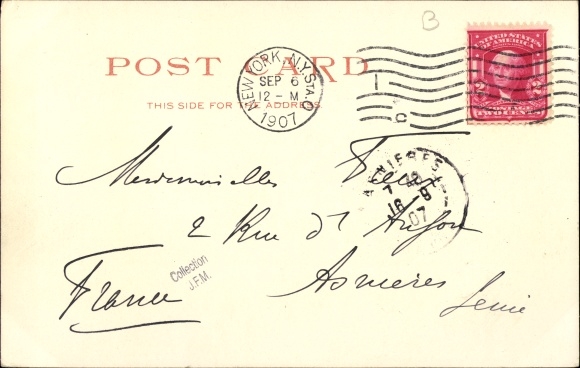 B
UNITED STATES
OF AMERICA
POST CARD
NEW YORK, N.Y. STA. O
SEP 6
12 - M
1907
2 2
POSTAGE
TWO CENTS
THIS SIDE FOR THE ADDRESS
ASNIERES
7
16 - 9
07
Mesdemoiselles
2 Rue d'
Collection
J.F.M.
France
Asnieres
Seine